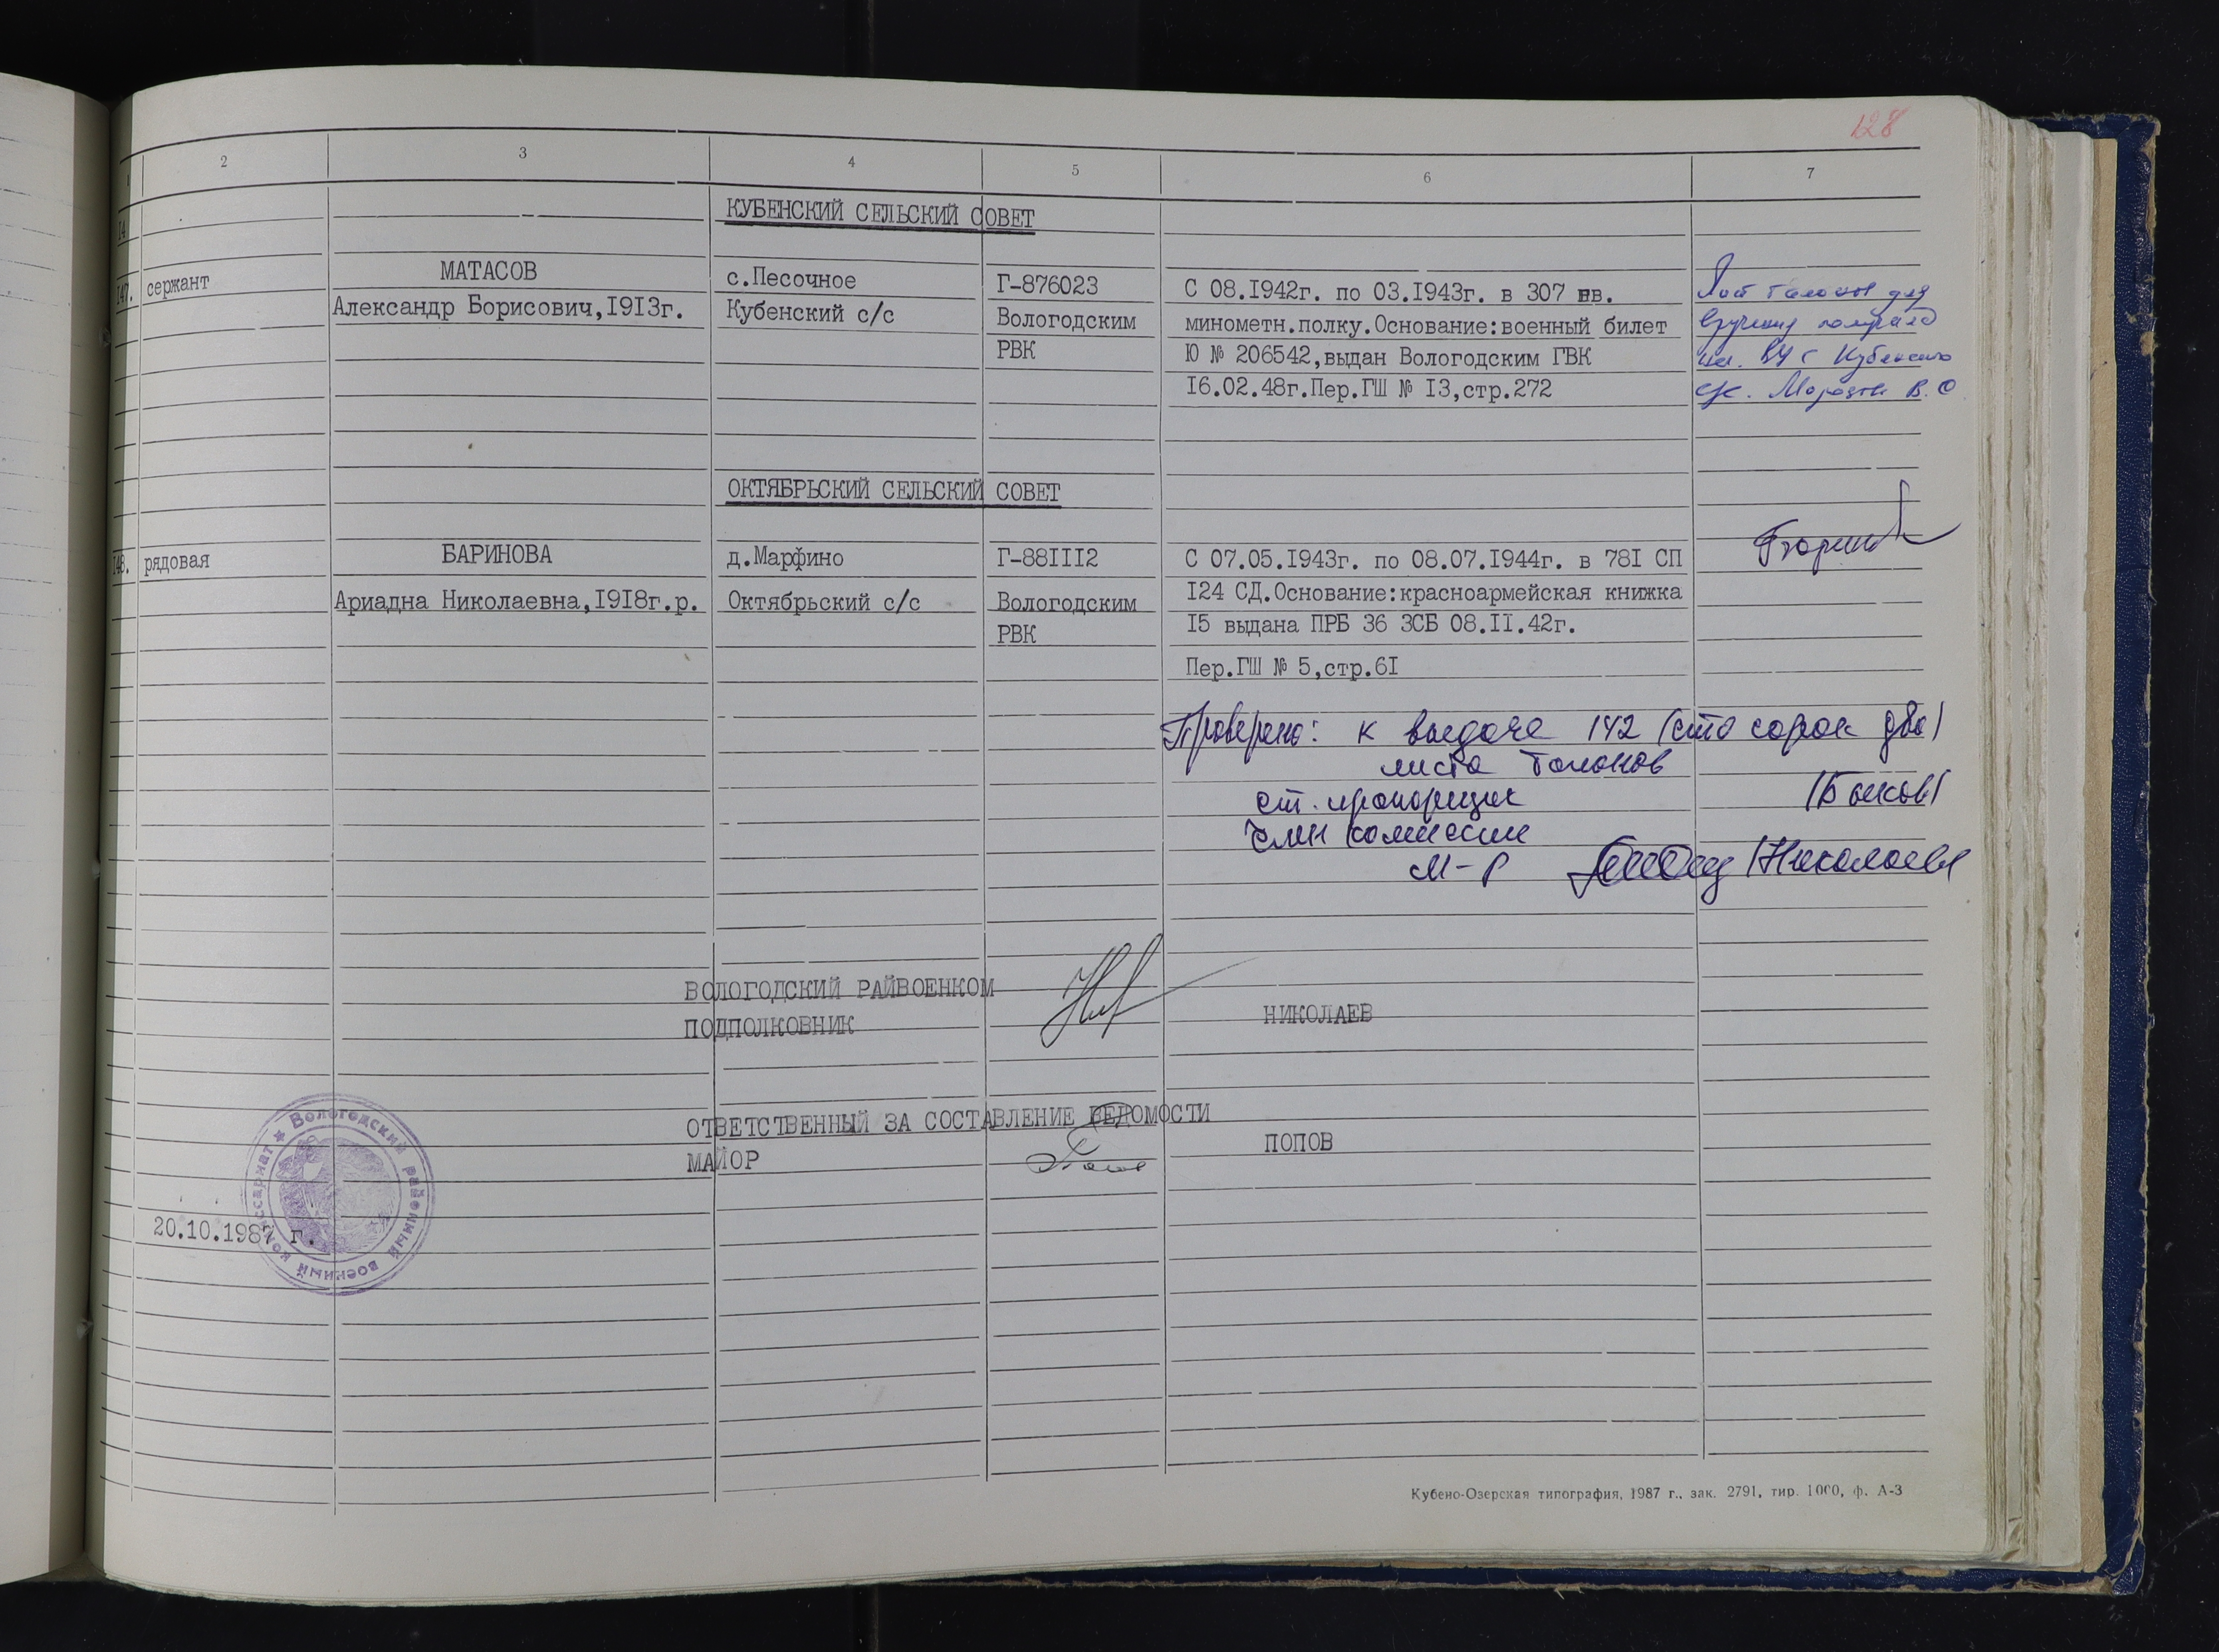 128
1 2 3 4 5 6 7
КУБЕНСКИЙ СЕЛЬСКИЙ СОВЕТ
147. сержант МАТАСОВ с.Песочное Г-876023 С 08.1942г. по 03.1943г. в 307 гв. Лист талонов для
Александр Борисович,1913г. Кубенский с/с Вологодским минометн.полку.Основание:военный билет вручения
РВК Ю № 206542,выдан Вологодским ГВК Кубенского
16.02.48г.Пер.ГШ № 13,стр.272 с/с.
ОКТЯБРЬСКИЙ СЕЛЬСКИЙ СОВЕТ
148. рядовая БАРИНОВА д.Марфино Г-881112 С 07.05.1943г. по 08.07.1944г. в 781 СП
Ариадна Николаевна,1918г.р. Октябрьский с/с Вологодским 124 СД.Основание:красноармейская книжка
РВК 15 выдана ПРБ 36 ЗСБ 08.11.42г.
Пер.ГШ № 5,стр.61
Проверено: к выдаче 142 (сто сорок два)
листа талонов
ст. прапорщик
член комиссии
М-р /Николаев
ВОЛОГОДСКИЙ РАЙВОЕНКОМ
ПОДПОЛКОВНИК НИКОЛАЕВ
ОТВЕТСТВЕННЫЙ ЗА СОСТАВЛЕНИЕ ВЕДОМОСТИ
МАЙОР ПОПОВ
Вологодский районный военный комиссариат
20.10.1987 г.
Кубено-Озерская типография, 1987 г., зак. 2791, тир. 1000, ф. А-3